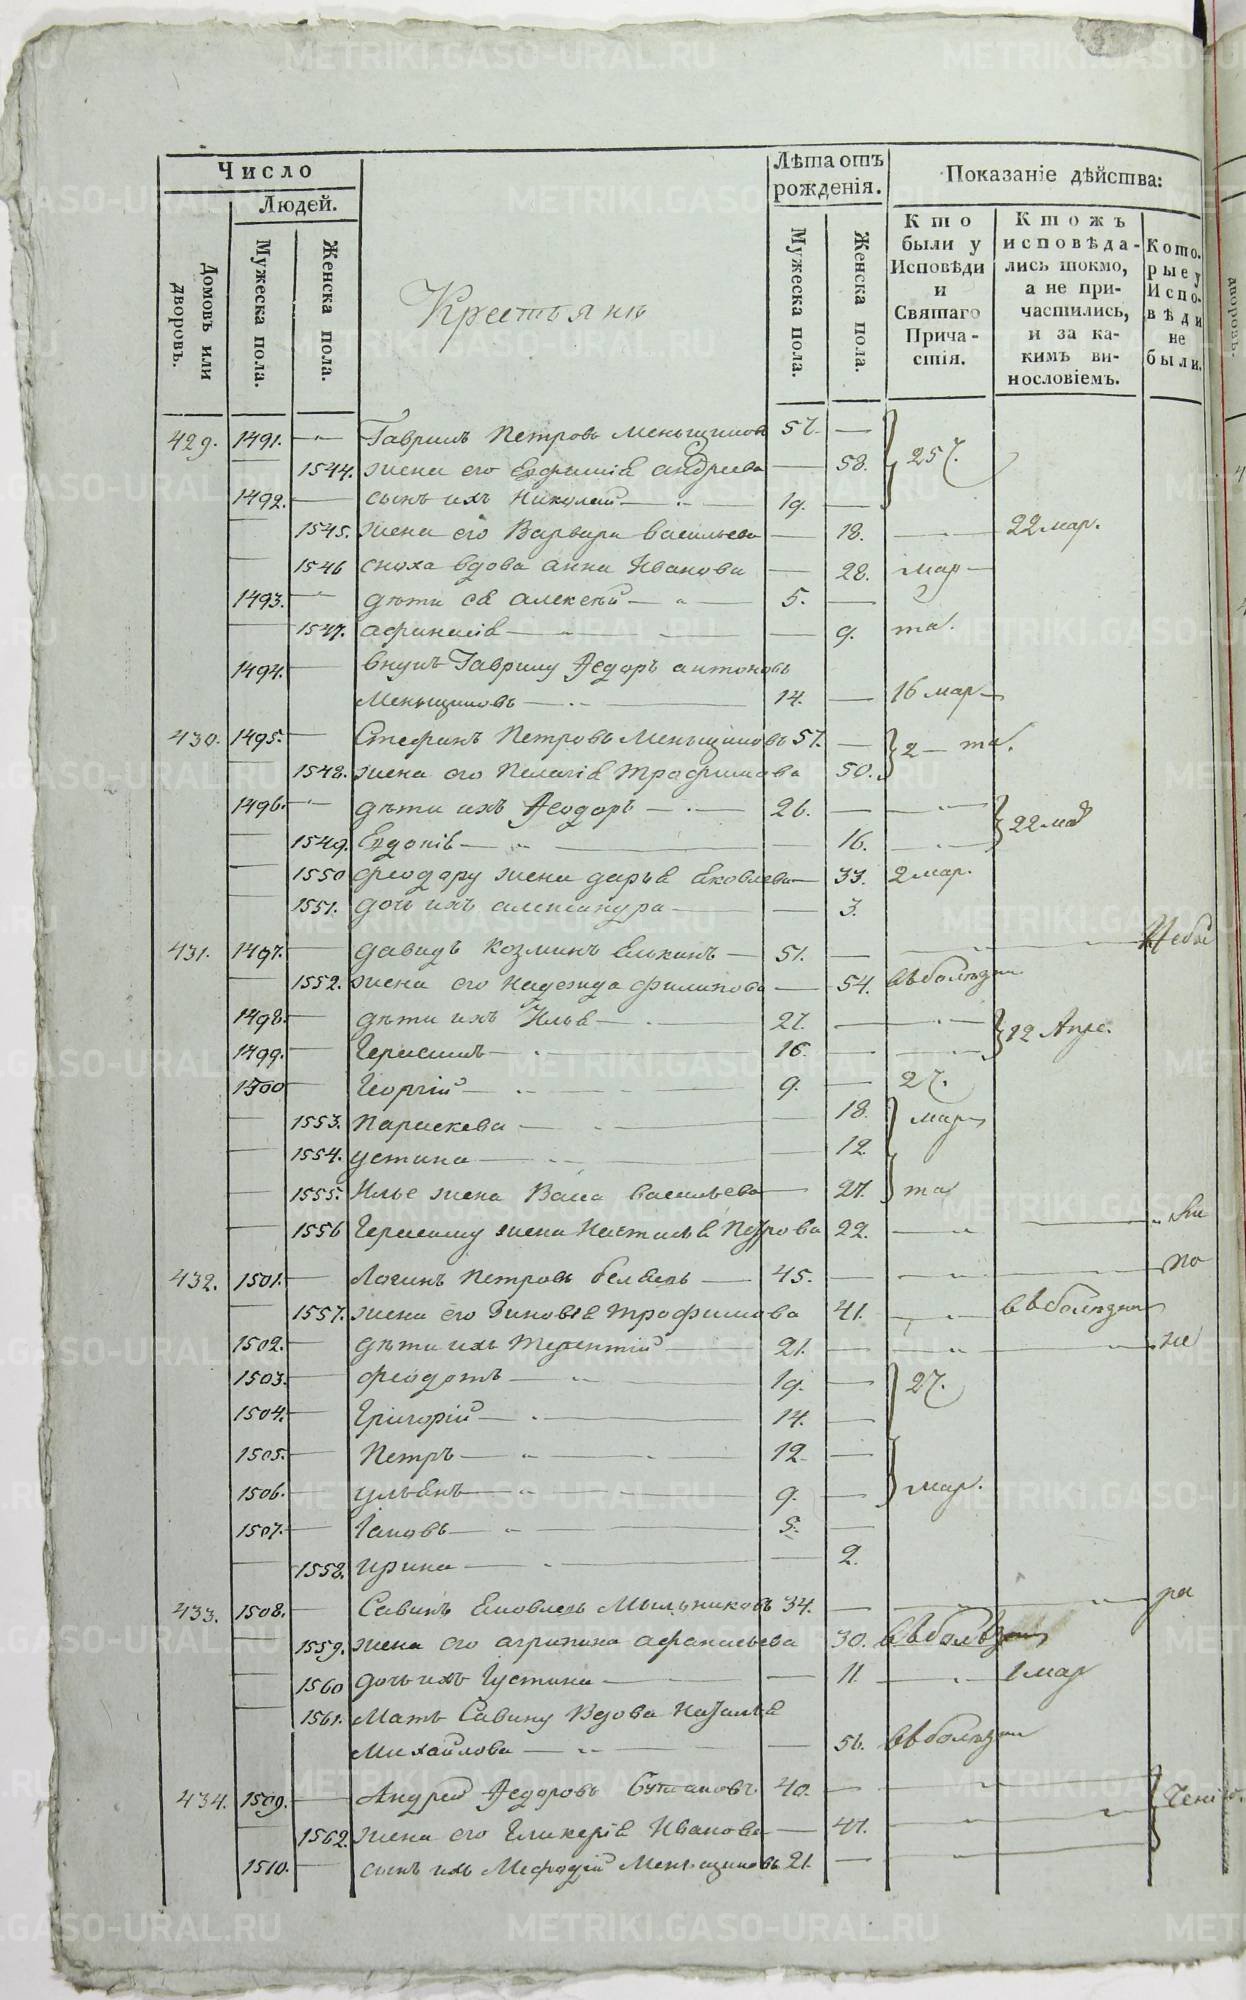 Число
Людей.
Домовъ или дворовъ.
Мужеска пола.
Женска пола.
Лѣта отъ рожденія.
Мужеска пола.
Женска пола.
Показаніе дѣйства:
Кто были у Исповѣди и Святаго Причастія.
Ктожъ исповѣдались токмо, а не причастились, и за какимъ винословіемъ.
Которые у Исповѣди не были.
Крестьянѣ
429. 1491. Гаврилъ Петровъ Меньщиковъ 57. 257.
1544. жена его Евфимія андреева 58.
1492. сынъ ихъ Николай 19.
1545. жена его Варвара васильева 18. 22 мар.
1546 сноха вдова анна Иванова 28. мар
1493. дѣти ея алексѣй 5.
1547. афанасія 9. та.
1494. внукъ Гаврилу Ѳедоръ антоновъ
Меньщиковъ 14. 16 мар
430. 1495. Стефанъ Петровъ Меньщиковъ 57. 2 та.
1548. жена его Пелагія трофимова 50.
1496. дѣти ихъ Ѳеодоръ 26. 22 ма
1549. Евдокія 16.
1550 феодору жена дарья яковлева 33. 2 мар.
1551. дочь ихъ александра 3.
431. 1497. давидъ Козминъ Елькинъ 51. Небы
1552. жена его надежда филипова 54. въ болѣзни
1498. дѣти ихъ Илья 27. 12 Апре.
1499. Герасимъ 16.
1500 Георгій 9. 27.
1553. Параскева 18. мар
1554. устина 12
1555. Илье жена Васса васильева 27. та
1556 Герасиму жена Настасья Петрова 22.
432. 1501. Логинъ Петровъ 45. по
1557. жена его Зиновія трофимова 41. въ болѣзни
1502. дѣти ихъ терентій 21. не
1503. феодотъ 19. 27.
1504. Григорій 14.
1505. Петръ 12
1506. ульянъ 9. мар.
1507. Іаковъ 5.
1558. ирина 2.
433. 1508. Савинъ Яковлевъ Мыльниковъ 34. ра
1559. жена его агрипина афанасьева 30. въ болѣзни
1560 дочь ихъ Іустина 11. 1 мар
1561. Мать Савину Вдова Наталья
Михайлова 56. въ болѣзни
434. 1509. Андрей Ѳедоровъ 40.
1562. жена его Гликерія Иванова 47.
1510. сынъ ихъ Мефодій Меньщиковъ 21.
METRIKI.GASO-URAL.RU